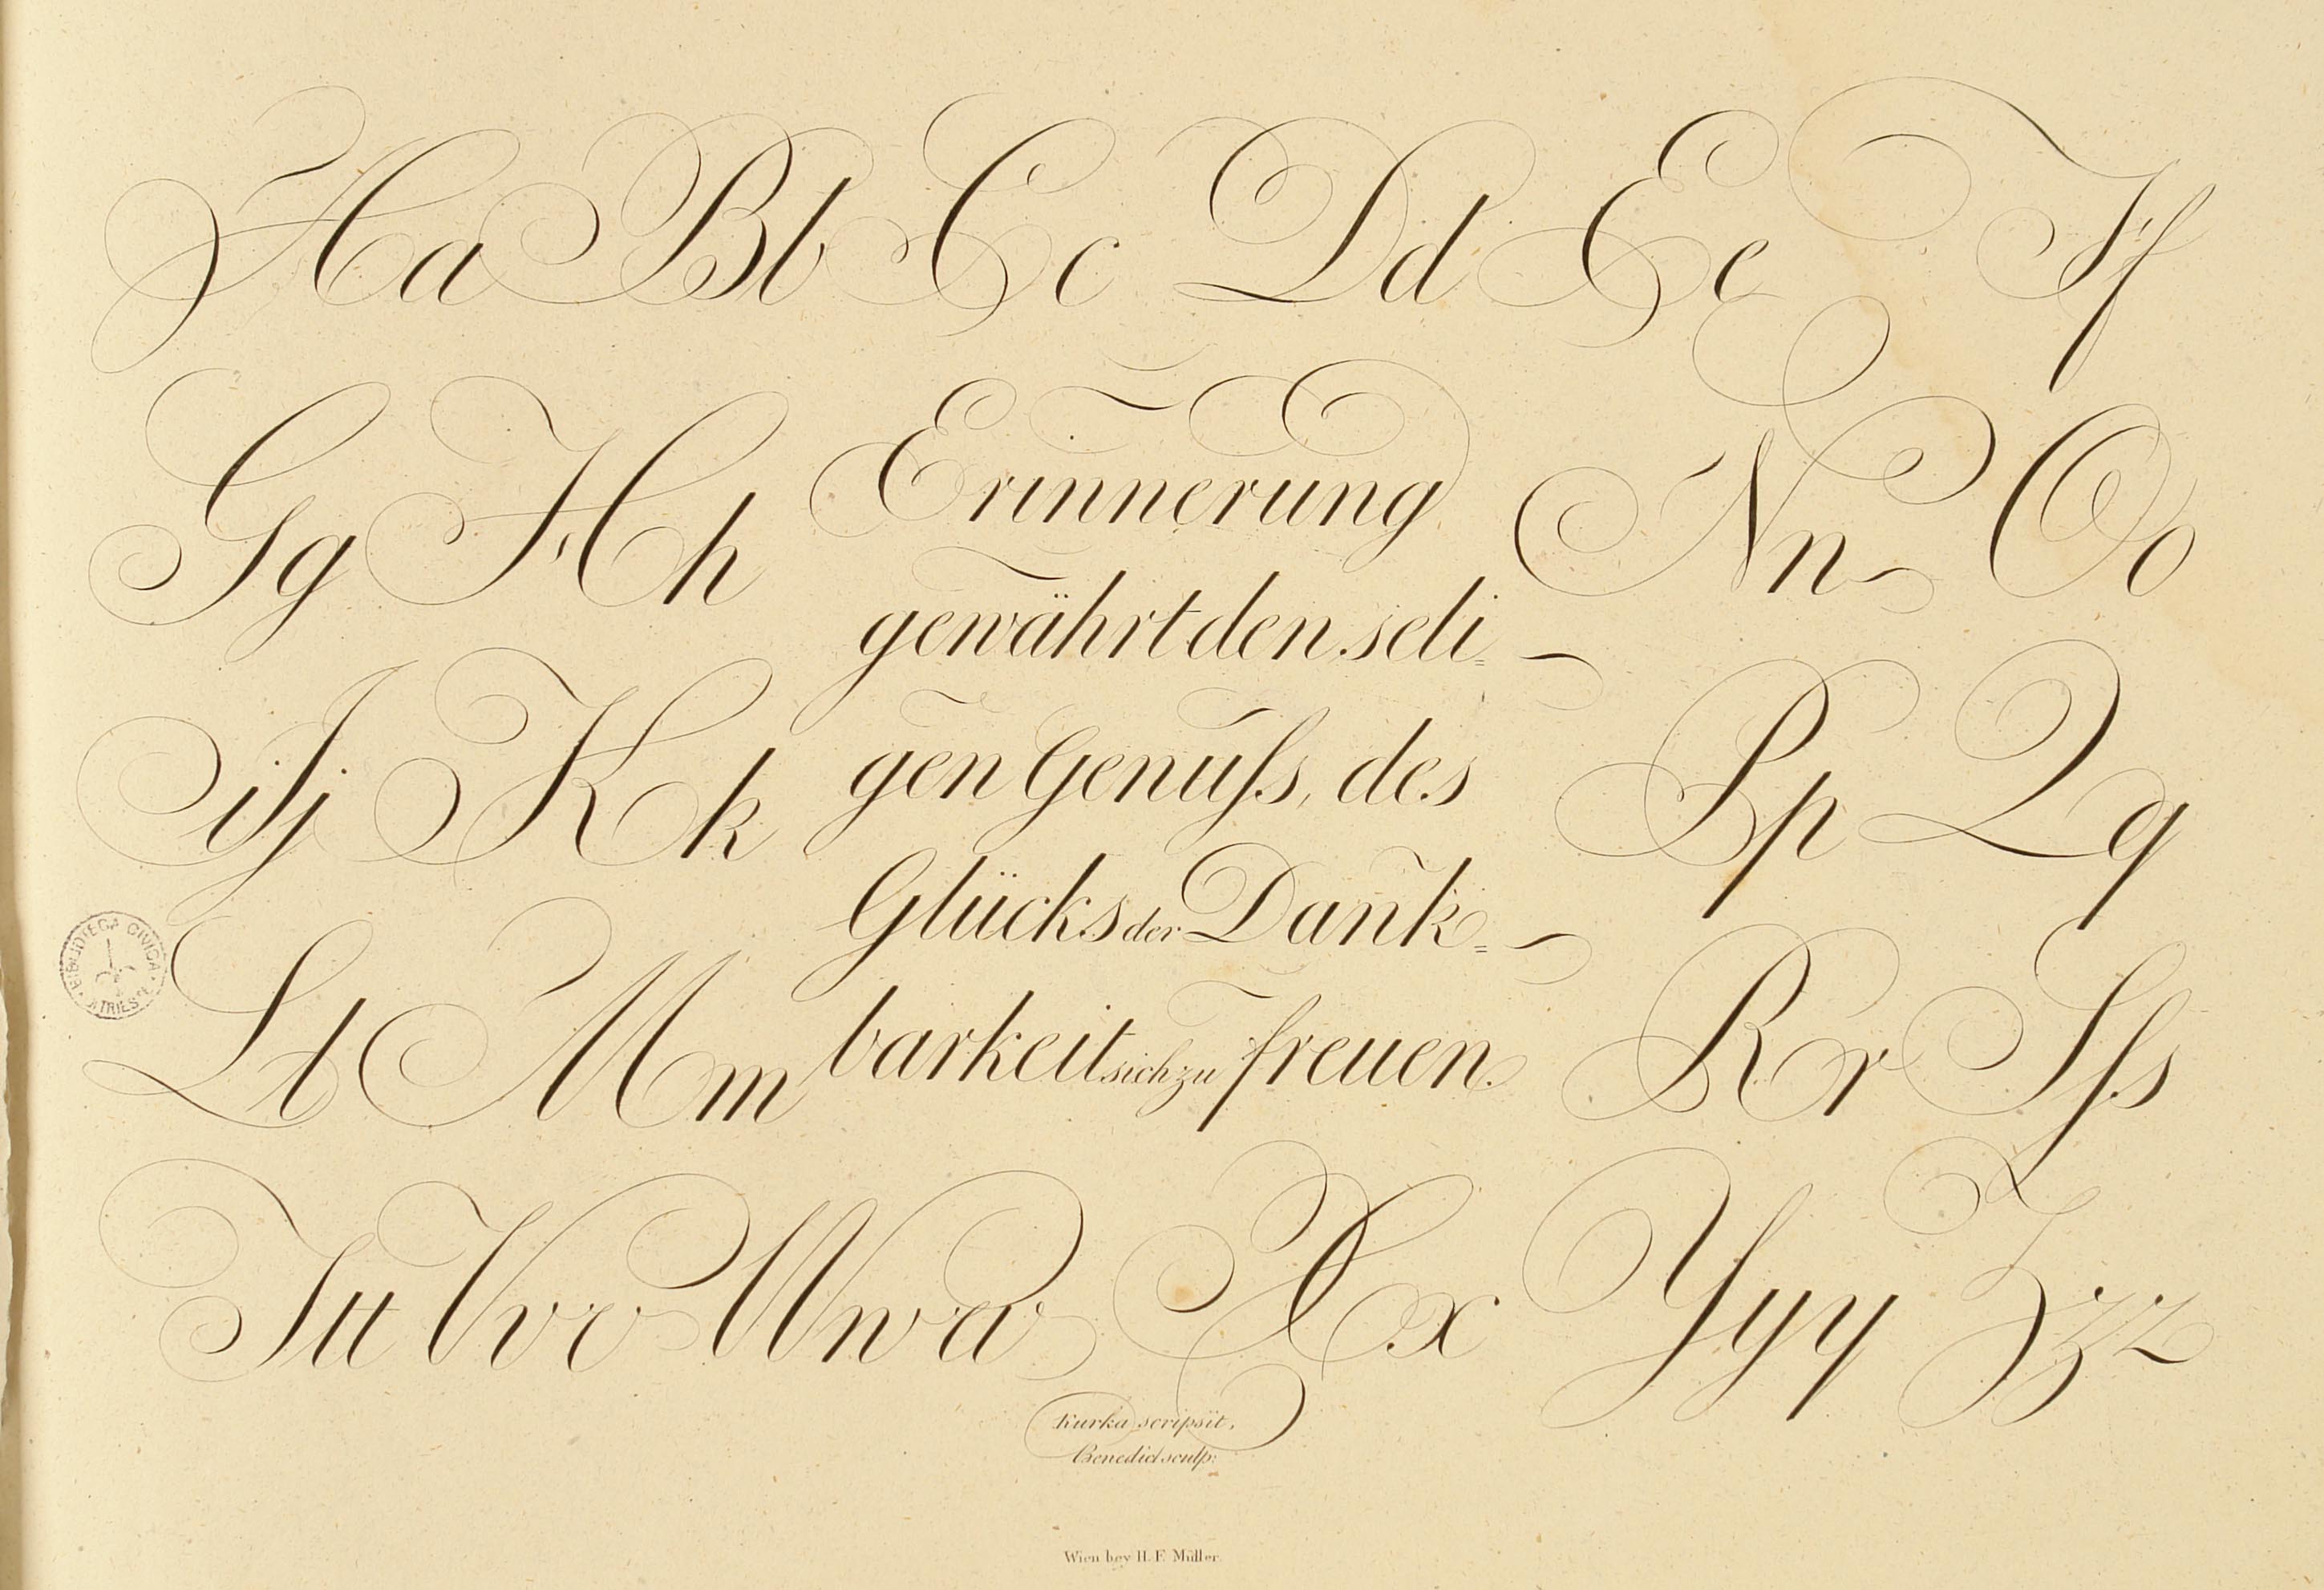 Aa Bb Cc Dd Ee Ff
Gg Hh
Erinnerung
Nn Oo
gewährt den seli=
iJj Kk
gen Genuſs, des
Pp Qq
Glücks der Dank=
Ll Mm
barkeit sich zu freuen.
Rr Sſs
Ttt Vvv Www Xx Yyy Zzz
Kurka scripsit.
Benedict sculp:
Wien bey H. F. Müller.
BIBLIOTECA CIVICA
TRIESTE